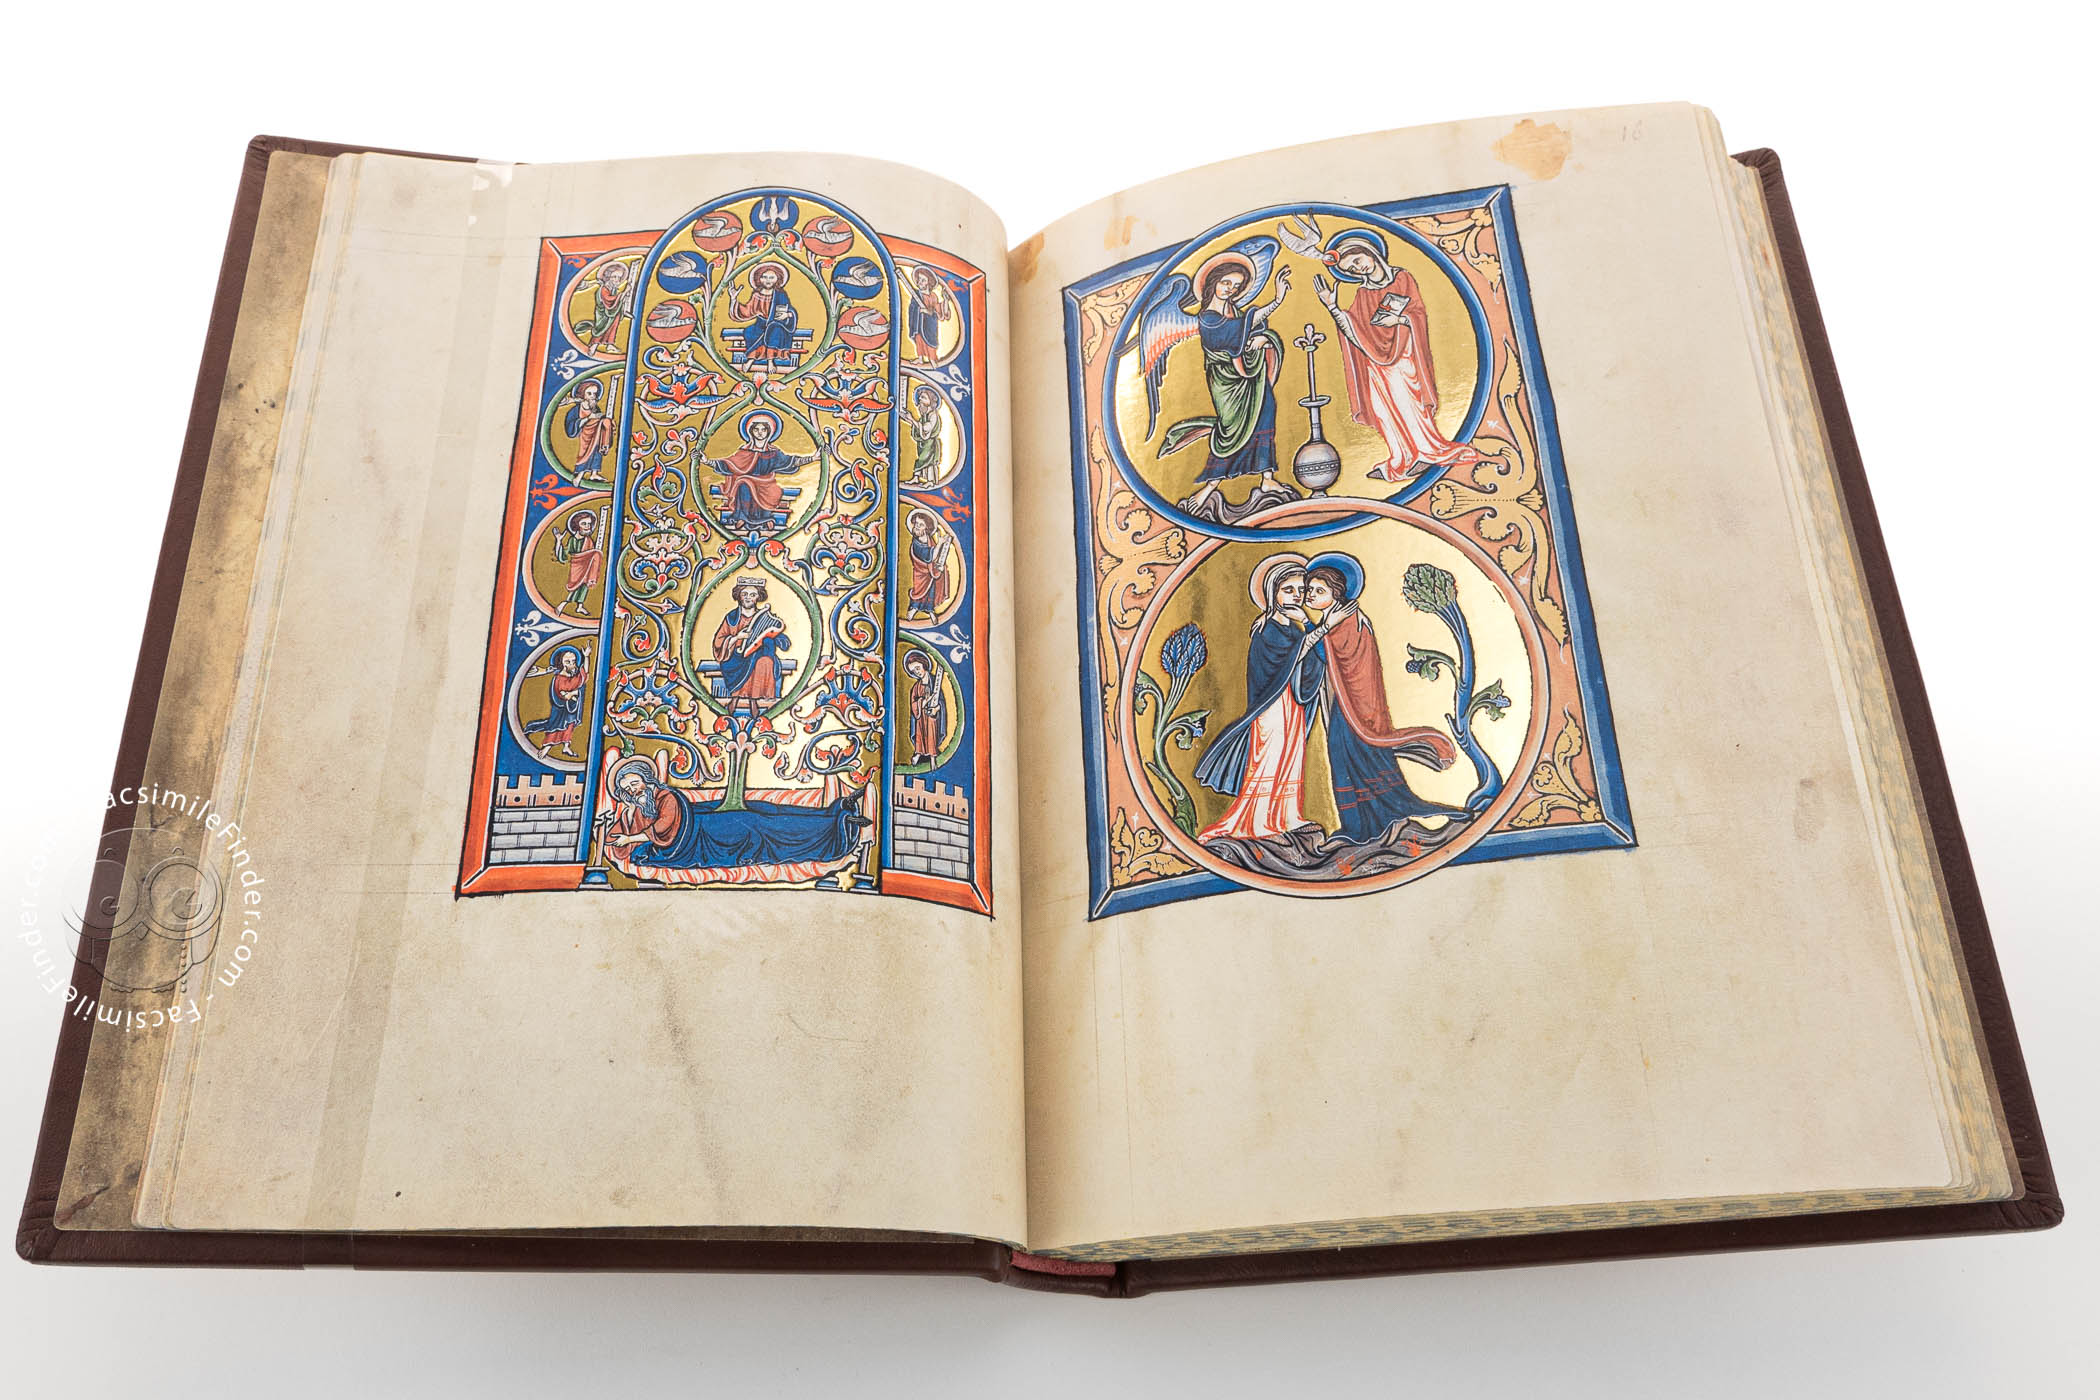 18
FacsimileFinder.com · FacsimileFinder.com